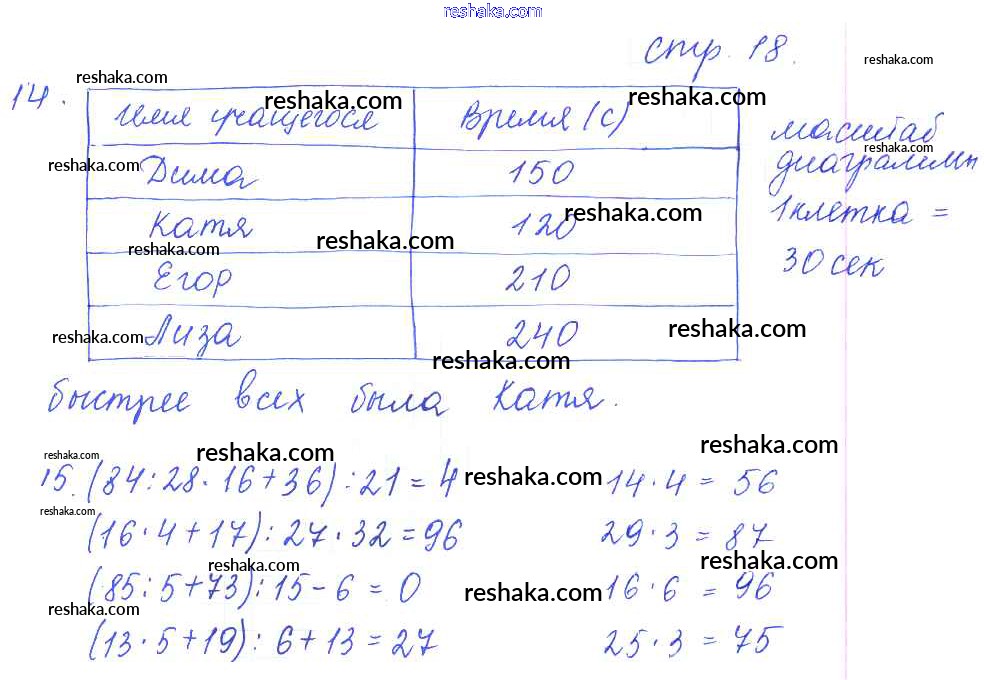 reshaka.com
стр. 18.
reshaka.com
reshaka.com
14.
Имя учащегося reshaka.com Время (с) reshaka.com
масштаб
reshaka.com
диаграммы
1 клетка =
30 сек
reshaka.com
Дима 150
Катя 120 reshaka.com
reshaka.com reshaka.com
Егор 210
reshaka.com Лиза 240 reshaka.com
reshaka.com
быстрее всех была Катя.
reshaka.com reshaka.com reshaka.com
15. (84:28·16+36):21=4 reshaka.com 14·4=56
reshaka.com
(16·4+17):27·32=96 29·3=87
reshaka.com reshaka.com
(85:5+73):15-6=0 reshaka.com 16·6=96
reshaka.com reshaka.com
(13·5+19):6+13=27 25·3=75